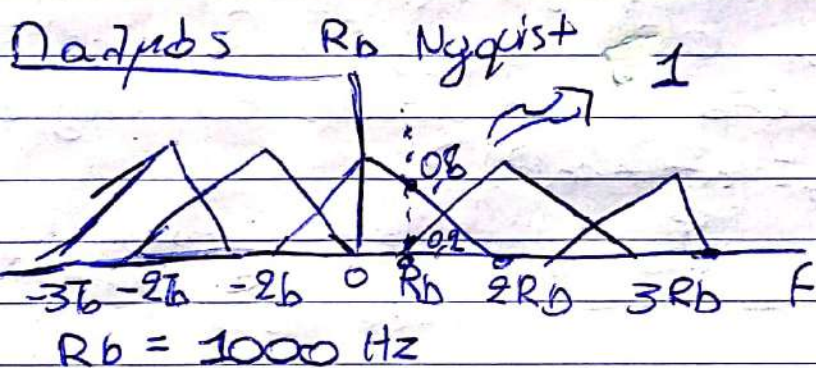 Παλμός Rb Nyquist
1
0,8
0,2
-3Tb -2Tb -2b 0 Rb 2Rb 3Rb F
Rb = 1000 Hz